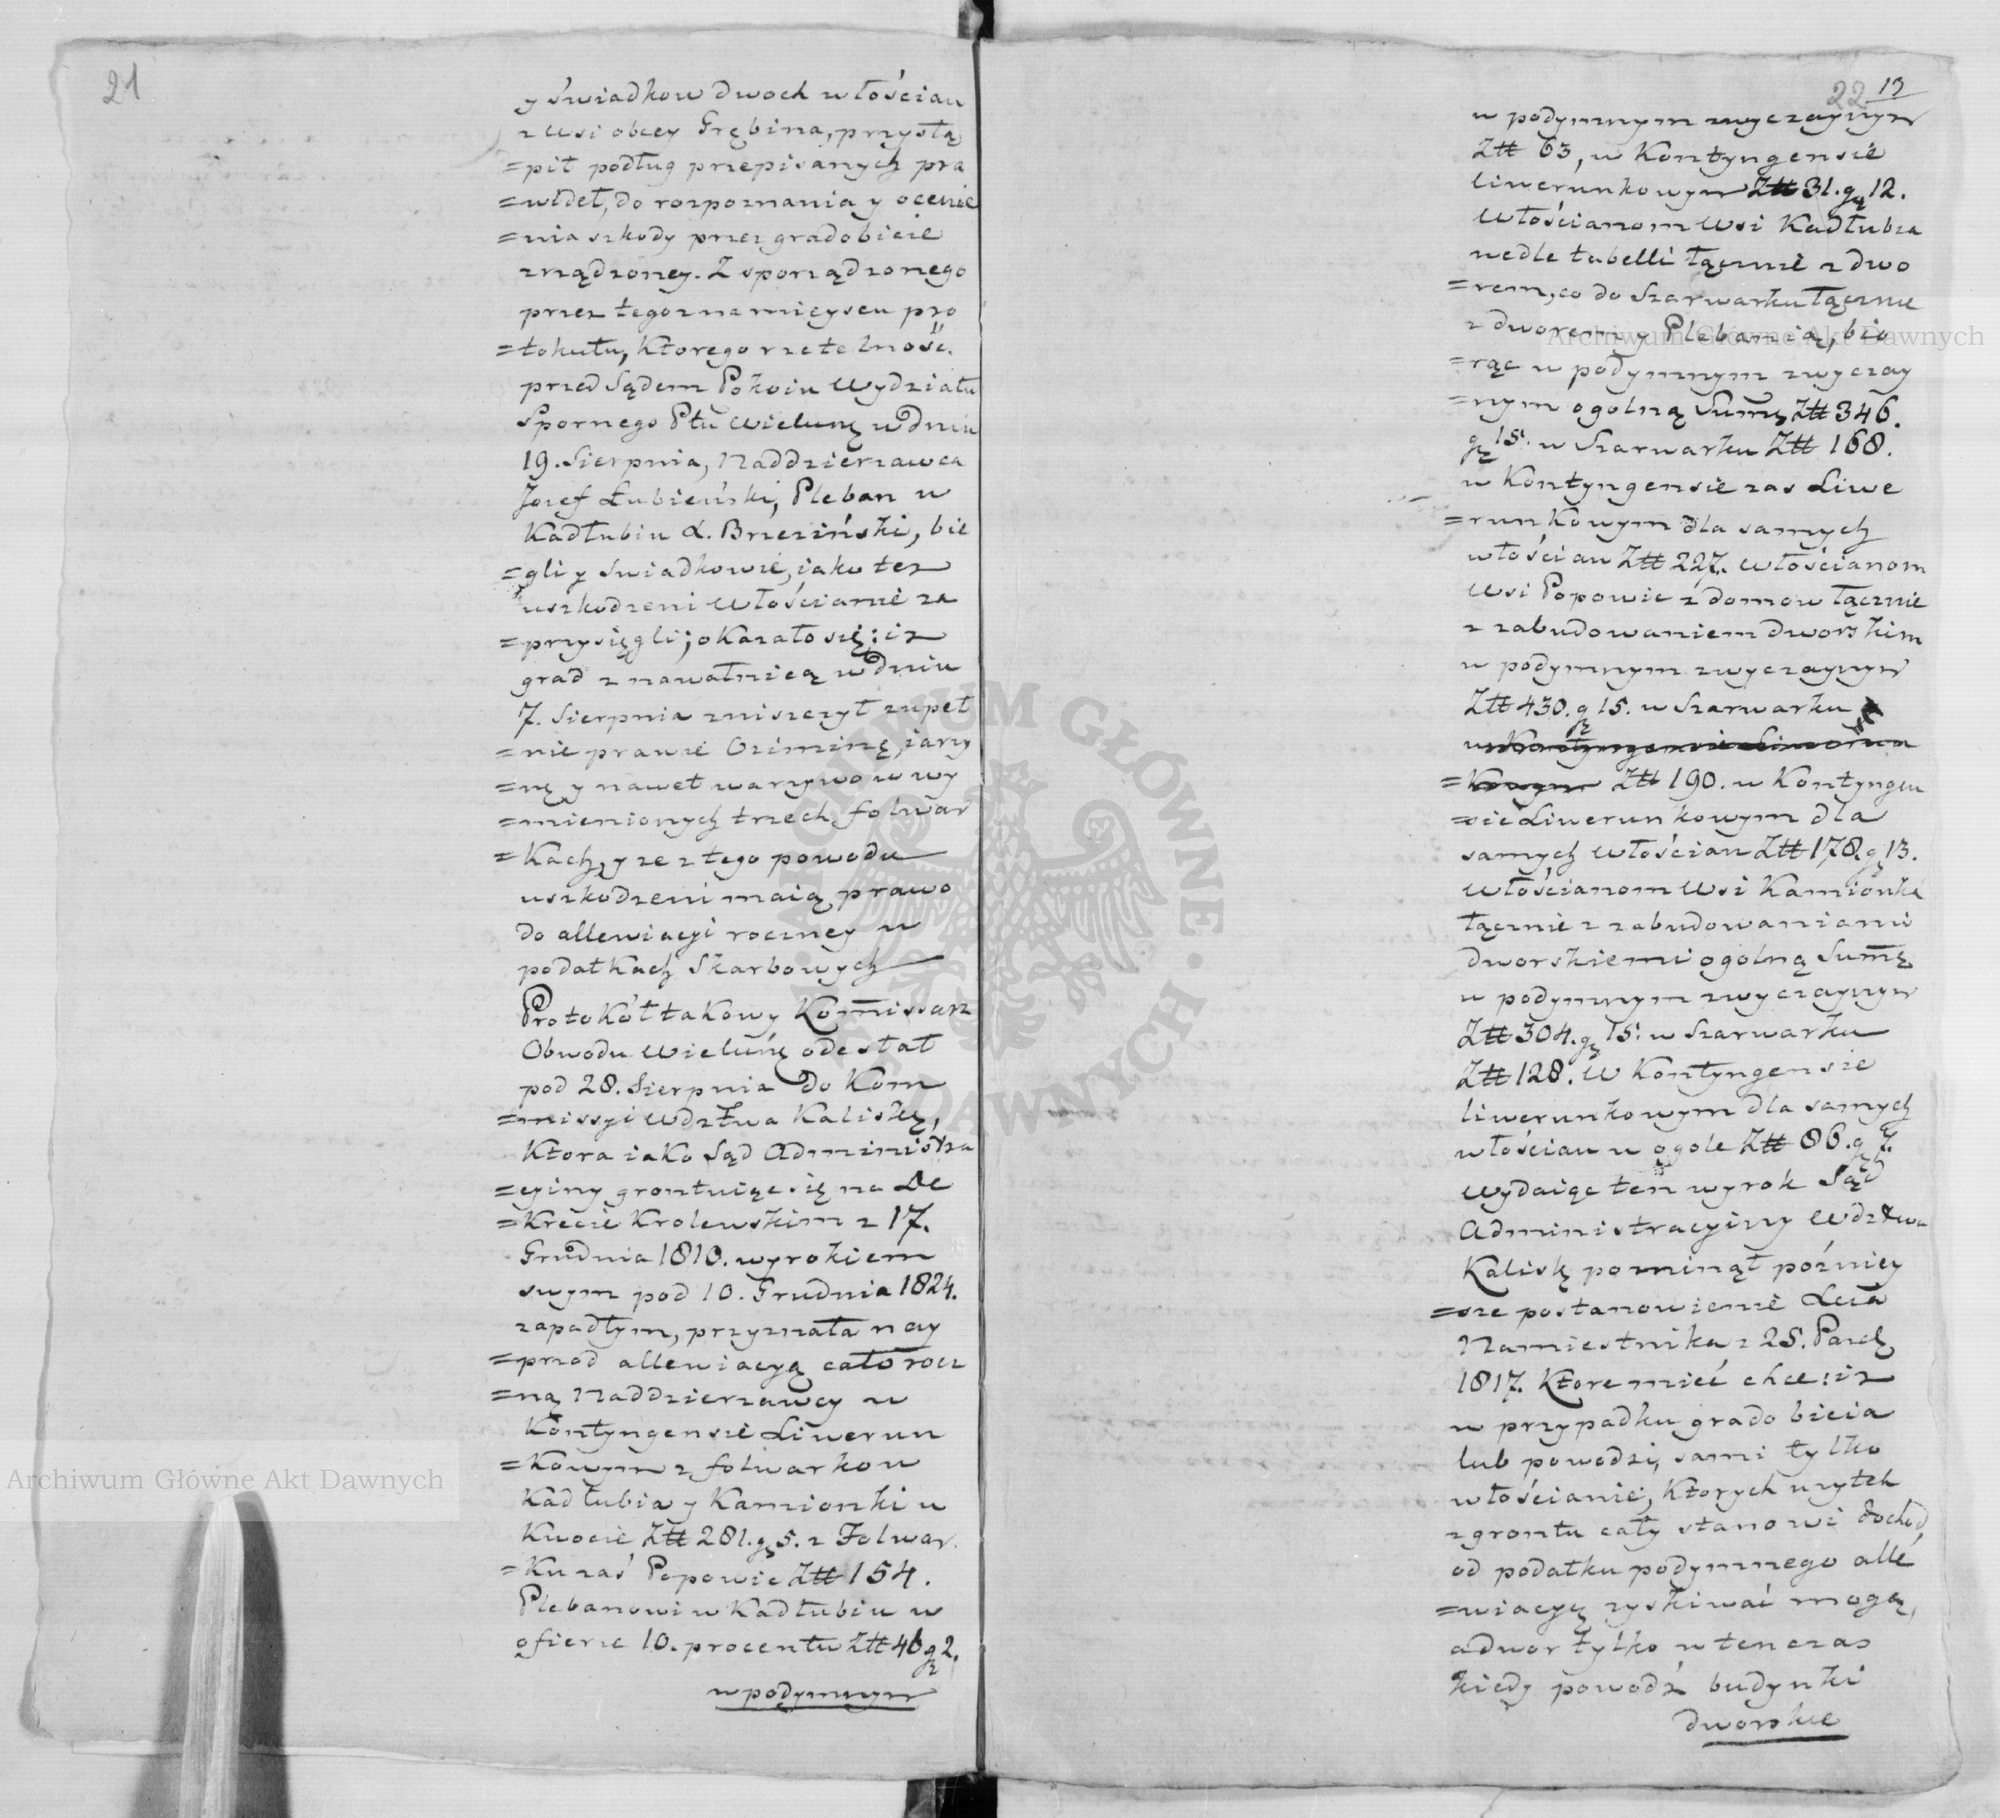 21
y świadkow dwoch włościan
z wsi obcey Grębina, przystą
=pił podług przepisanych pra
=wideł, do rozpoznania y ocenie
=nia szkody przez gradobicie
zrządzoney. Z sporządzonego
przez tegoz na mieyscu pro
=tokułu, Ktorego rzetelność
przed Sądem Pokoiu Wydziału
Spornego Ptu Wieluńg w dniu
19. Sierpnia, Naddzierzawca
Jozef Łubieński, Pleban w
Kadłubiu L. Brzeziński, bie
=gli y swiadkowie, iako tez
uszkodzeni Włościanie za
=przysięgli; okazało się: iz
grad z nawałnicą w dniu
7. Sierpnia zniszczył zupeł
=nie prawie Oziminę, iarzy
=nę y nawet warzywo w wy
=mienionych trzech folwar
=kach, y ze z tego powodu
uszkodzeni maią prawo
do allewiacyi roczney w
podatkach Skarbowych
Protokół takowy Kom̄issarz
Obwodu Wieluńg odesłał
pod 28. Sierpnia do Kom
=missyi Wdztwa Kaliskg,
Ktora iako Sąd Administra
=cyiny gruntuiąc się na De
=krecie Krolewskim z 17.
Grudnia 1810. wyrokiem
swym pod 10. Grudnia 1824.
zapadłym, przyznała nay
=przod allewiacyą całorocz
=ną Naddzierzawcy w
Kontyngensie Liwerun
=kowym z folwarkow
Kadłubia y Kamionki w
Kwocie Ztt 281. g 5. z Folwar
=ku zaś Popowic Ztt 154.
Plebanowi w Kadłubiu w
ofierze 10. procentu Ztt 46 g 2.
w podymnym
22 13
w podymnym zwyczaynym
Ztt 63, w Kontyngensie
liwerunkowym Ztt 31. g 12.
Włościanom Wsi Kadłubza
wedle tabelli łącznie z dwo
=rem, co do Szarwarku łącznie
z dworem y Plebanią, bio
=rąc w podymnym zwyczay
=nym ogolną Sum̄ę Ztt 346.
g 15. w Szarwarku Ztt 168.
w Kontyngensie zas Liwe
=runkowym dla samych
włościan Ztt 227. Włościanom
Wsi Popowic z domow łącznie
z zabudowaniem dworskim
w podymnym zwyczaynym
Ztt 430. g 15. w Szarwarku
w Kontyngensie Liwerun
=kowym Ztt 190. w Kontyngen
=sie Liwerunkowym dla
samych Włościan Ztt 178. g 13.
Włościanom Wsi Kamionki
łącznie z zabudowaniami
dworskiemi ogolną Sum̄ę
w podymnym zwyczaynym
Ztt 304. g 15. w Szarwarku
Ztt 128. W Kontyngensie
liwerunkowym dla samych
włościan w ogole Ztt 86. g 7.
Wydaiąc ten wyrok Sąd
Administracyiny Wdztwa
Kaliskg pominął późniey
=sze postanowienie Xcia
Namiestnika z 25. Pazd
1817. Ktore mieć chce: iz
w przypadku gradobicia
lub powodzi, sami tylko
włościanie, Ktorych uzytek
z gruntu cały stanowi dochod,
od podatku podymnego alle
=wiacyę zyskiwać mogą,
a dwor tylko w tenczas
kiedy powodź budynki
dworskie
Archiwum Główne Akt Dawnych
Archiwum Główne Akt Dawnych
ARCHIWUM GŁÓWNE AKT DAWNYCH